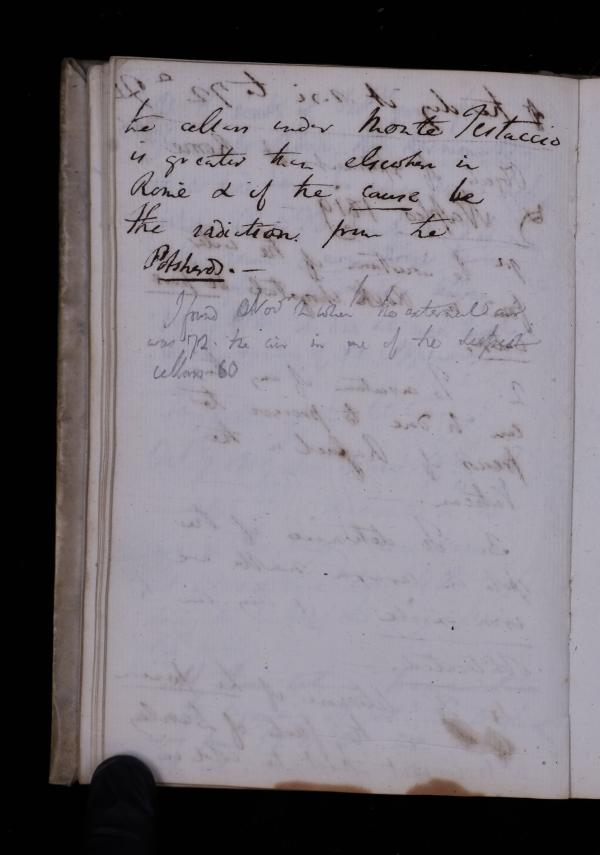 the cellars under Monte Testaccio
is greater than elsewhere in
Rome & if the cause be
the radiation from the
Potsherds. —
I found Nov.r 2 when the external air
was 72. the air in one of the deepest
cellars 60